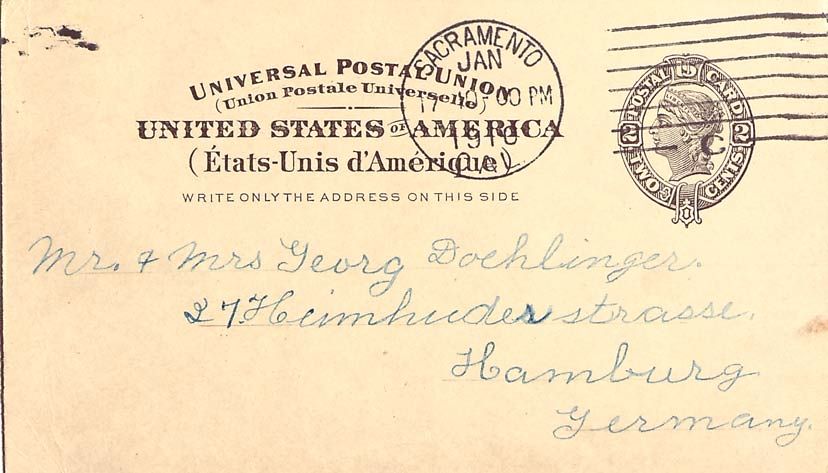 UNIVERSAL POSTAL UNION
(Union Postale Universelle)
UNITED STATES OF AMERICA
(États-Unis d'Amérique)
WRITE ONLY THE ADDRESS ON THIS SIDE
SACRAMENTO
JAN
17 00 PM
1910
CAL
POSTAL CARD
U S
2 2
TWO CENTS
C
Mr. & Mrs Georg Doehlinger.
27. Heimhuderstrasse.
Hamburg
Germany.